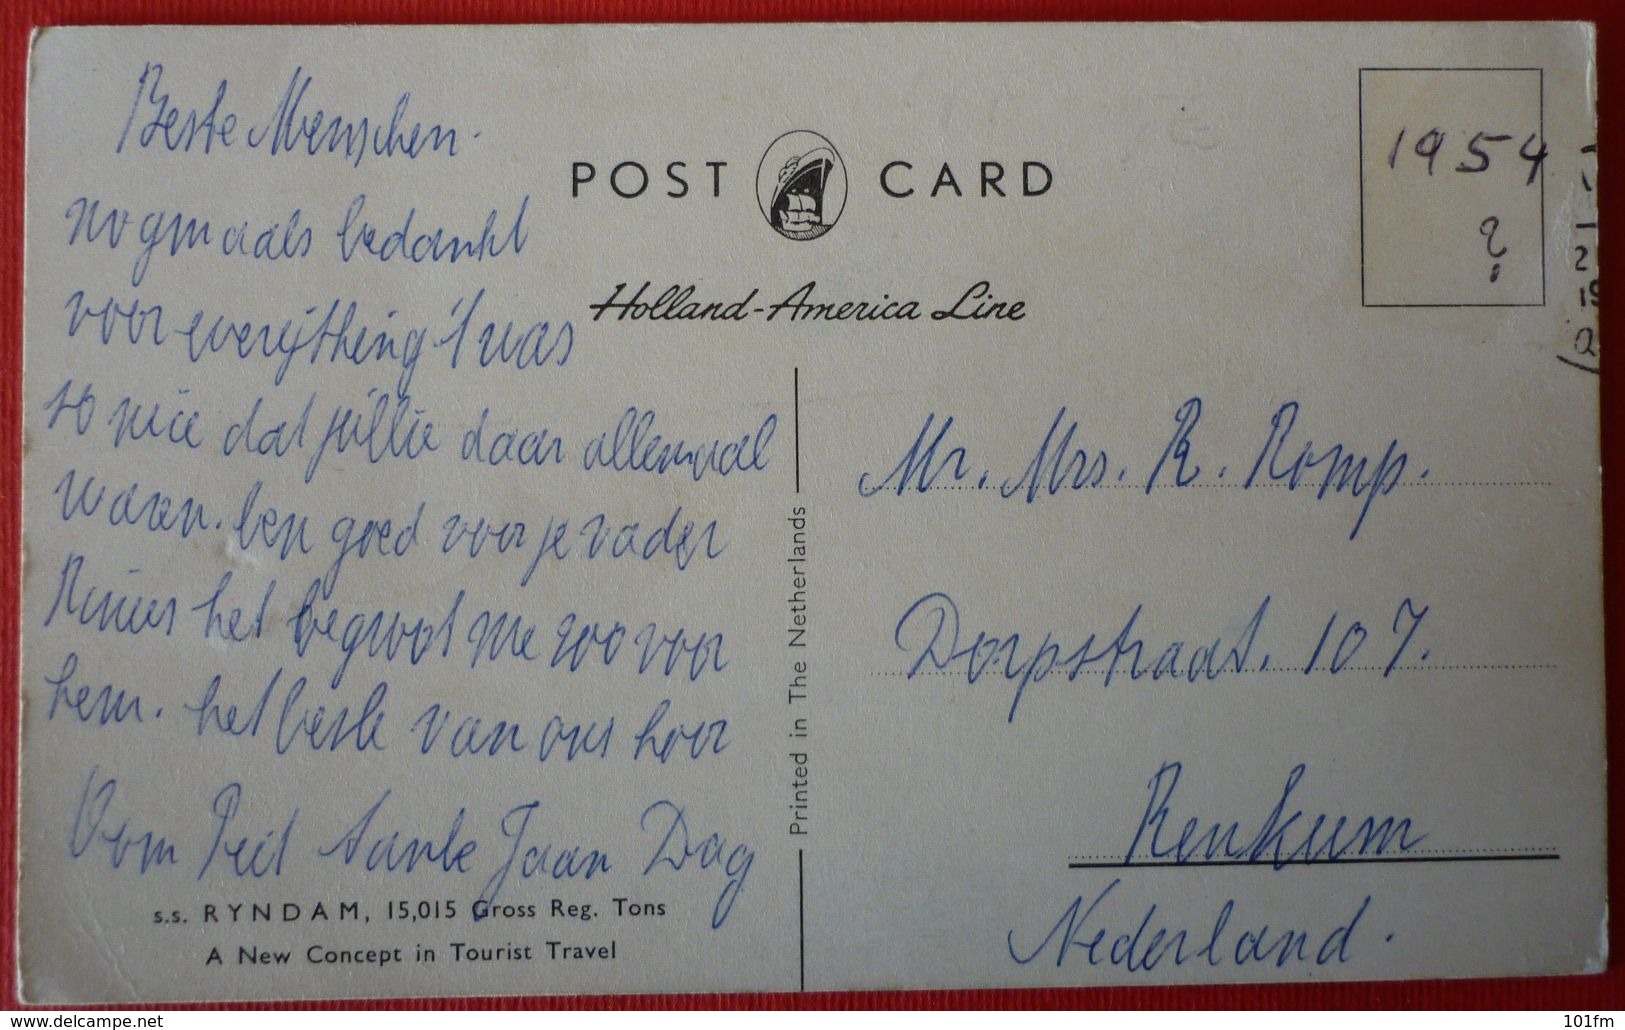 Beste Menschen.
nogmaals bedankt
voor everijthing 't was
so nice dat jullie daar allemaal
waren. ben goed voor je vader
Rinus het begroot me zoo voor
hem. het beste van ons hoor
Oom Piet tante Jaan Dag
s.s. RYNDAM, 15,015 Gross Reg. Tons
A New Concept in Tourist Travel
POST CARD
Holland-America Line
Printed in The Netherlands
1954
?
Mr. Mrs. R. Romp.
Dorpstraat. 107.
Renkum
Nederland.
www.delcampe.net
101fm